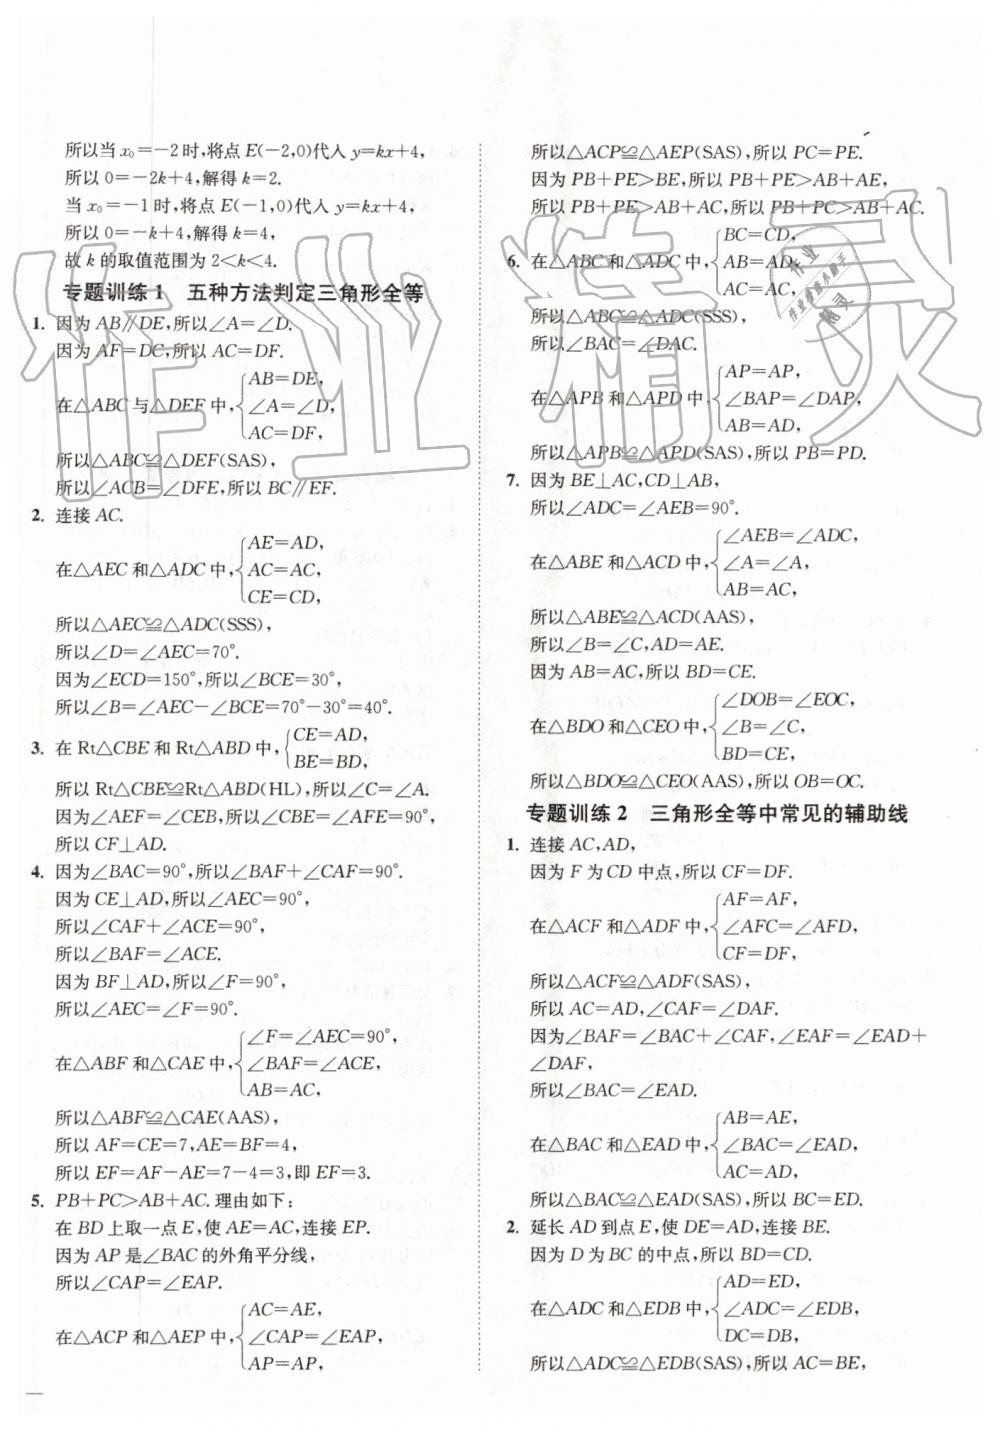 所以当 x₀=-2时,将点 E(-2,0)代入 y=kx+4,
所以 0=-2k+4,解得 k=2.
当 x₀=-1时,将点 E(-1,0)代入 y=kx+4,
所以 0=-k+4,解得 k=4,
故 k 的取值范围为 2<k<4.
专题训练 1 五种方法判定三角形全等
1. 因为 AB∥DE,所以∠A=∠D.
因为 AF=DC,所以 AC=DF.
AB=DE,
在△ABC 与△DEF 中,{∠A=∠D,
AC=DF,
所以△ABC≌△DEF(SAS),
所以∠ACB=∠DFE,所以 BC∥EF.
2. 连接 AC.
AE=AD,
在△AEC 和△ADC 中,{AC=AC,
CE=CD,
所以△AEC≌△ADC(SSS),
所以∠D=∠AEC=70°.
因为∠ECD=150°,所以∠BCE=30°,
所以∠B=∠AEC-∠BCE=70°-30°=40°.
3. 在 Rt△CBE 和 Rt△ABD 中,{CE=AD,
BE=BD,
所以 Rt△CBE≌Rt△ABD(HL),所以∠C=∠A.
因为∠AEF=∠CEB,所以∠CBE=∠AFE=90°,
所以 CF⊥AD.
4. 因为∠BAC=90°,所以∠BAF+∠CAF=90°.
因为 CE⊥AD,所以∠AEC=90°,
所以∠CAF+∠ACE=90°,
所以∠BAF=∠ACE.
因为 BF⊥AD,所以∠F=90°,
所以∠AEC=∠F=90°.
∠F=∠AEC=90°,
在△ABF 和△CAE 中,{∠BAF=∠ACE,
AB=AC,
所以△ABF≌△CAE(AAS),
所以 AF=CE=7,AE=BF=4,
所以 EF=AF-AE=7-4=3,即 EF=3.
5. PB+PC>AB+AC.理由如下:
在 BD 上取一点 E,使 AE=AC,连接 EP.
因为 AP 是∠BAC 的外角平分线,
所以∠CAP=∠EAP.
AC=AE,
在△ACP 和△AEP 中,{∠CAP=∠EAP,
AP=AP,
所以△ACP≌△AEP(SAS),所以 PC=PE.
因为 PB+PE>BE,所以 PB+PE>AB+AE,
所以 PB+PE>AB+AC,所以 PB+PC>AB+AC.
BC=CD,
6. 在△ABC 和△ADC 中,{AB=AD,
AC=AC,
所以△ABC≌△ADC(SSS),
所以∠BAC=∠DAC.
AP=AP,
在△APB 和△APD 中,{∠BAP=∠DAP,
AB=AD,
所以△APB≌△APD(SAS),所以 PB=PD.
7. 因为 BE⊥AC,CD⊥AB,
所以∠ADC=∠AEB=90°.
∠AEB=∠ADC,
在△ABE 和△ACD 中,{∠A=∠A,
AB=AC,
所以△ABE≌△ACD(AAS),
所以∠B=∠C,AD=AE.
因为 AB=AC,所以 BD=CE.
∠DOB=∠EOC,
在△BDO 和△CEO 中,{∠B=∠C,
BD=CE,
所以△BDO≌△CEO(AAS),所以 OB=OC.
专题训练 2 三角形全等中常见的辅助线
1. 连接 AC,AD,
因为 F 为 CD 中点,所以 CF=DF.
AF=AF,
在△ACF 和△ADF 中,{∠AFC=∠AFD,
CF=DF,
所以△ACF≌△ADF(SAS),
所以 AC=AD,∠CAF=∠DAF.
因为∠BAF=∠BAC+∠CAF,∠EAF=∠EAD+
∠DAF,
所以∠BAC=∠EAD.
AB=AE,
在△BAC 和△EAD 中,{∠BAC=∠EAD,
AC=AD,
所以△BAC≌△EAD(SAS),所以 BC=ED.
2. 延长 AD 到点 E,使 DE=AD,连接 BE.
因为 D 为 BC 的中点,所以 BD=CD.
AD=ED,
在△ADC 和△EDB 中,{∠ADC=∠EDB,
DC=DB,
所以△ADC≌△EDB(SAS),所以 AC=BE,
作业精灵